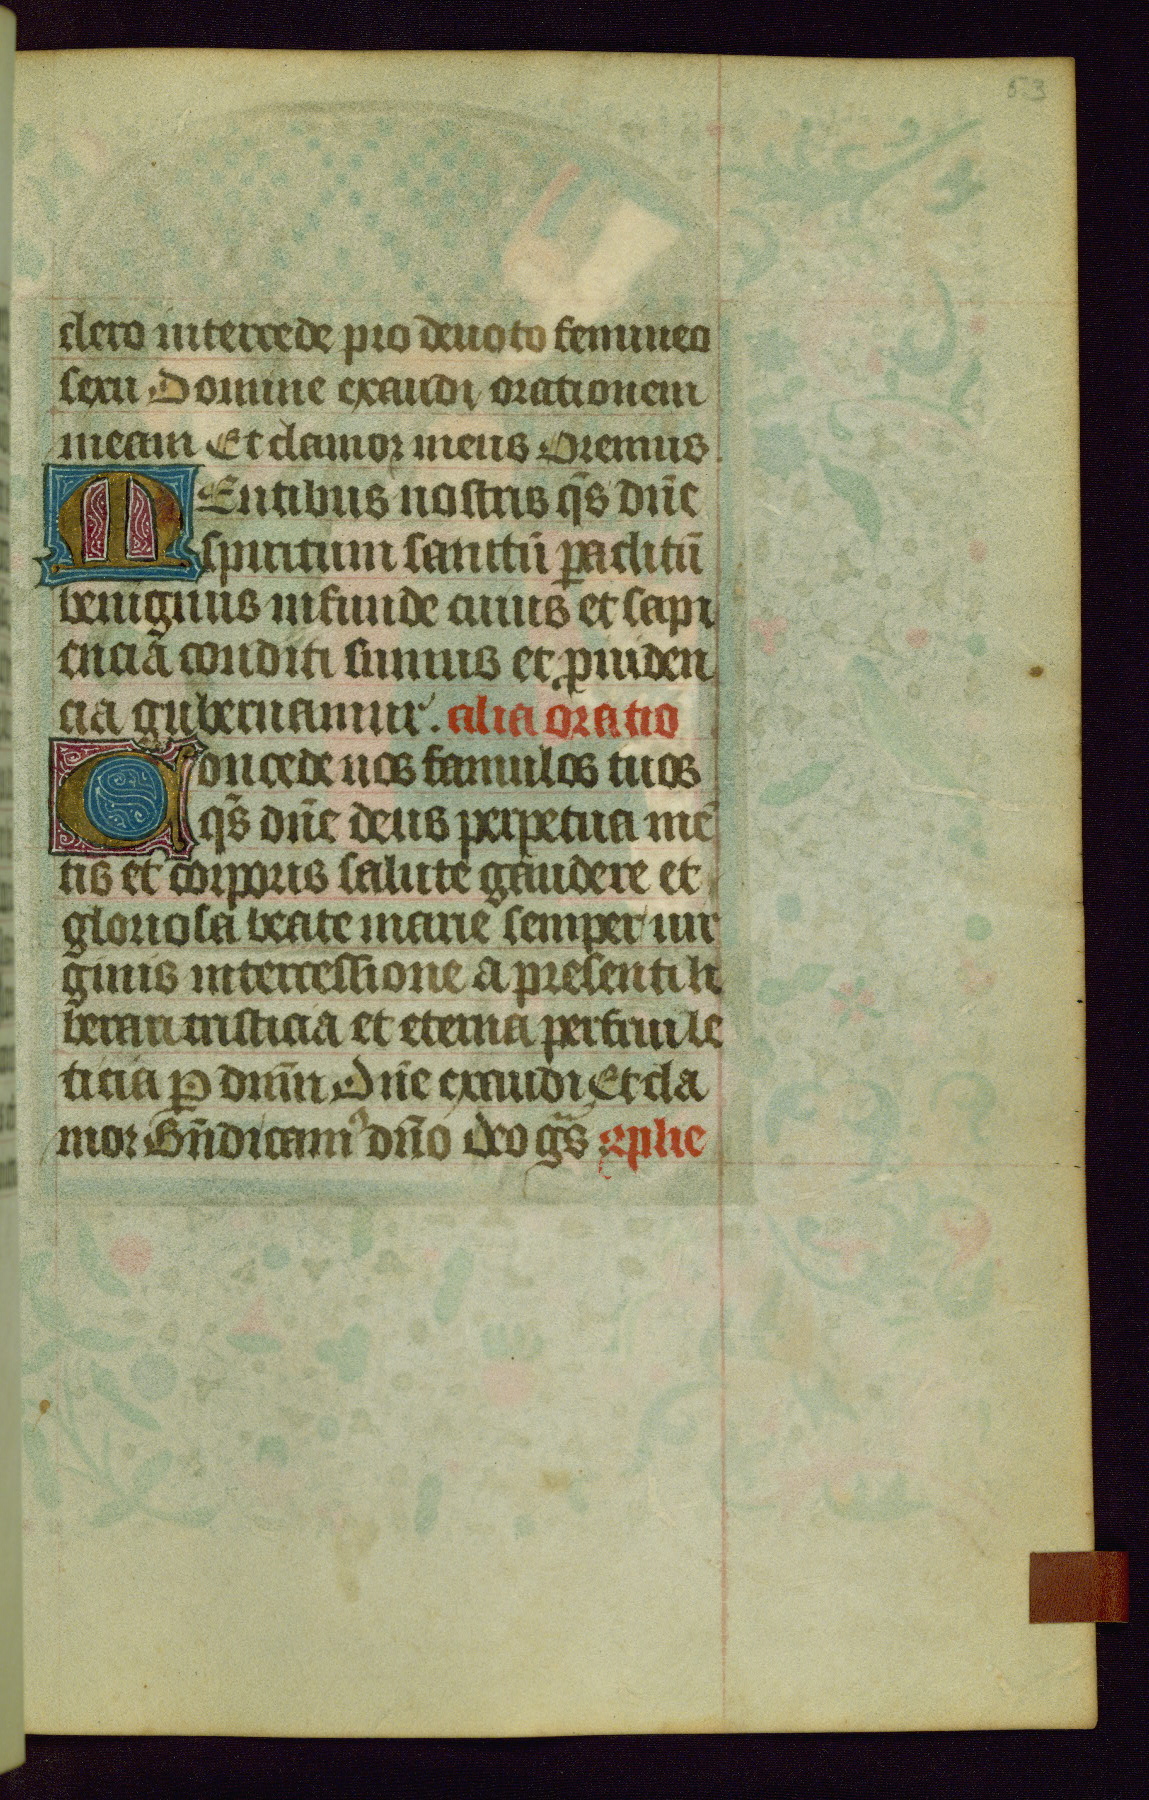 53
clero intercede pro deuoto femineo
sexu Domine exaudi orationem
meam Et clamor meus Oremus
MEntibus nostris q̄s dn̄e
spiritum sanctū ꝑaclitū
benignus infunde cuius et sapi
enciā conditi sumus et ꝓuiden
cia gubernamur. alia oratio
Concede nos famulos tuos
q̄s dn̄e deus perpetua mē
tis et corporis salute gaudere et
gloriosa beate marie semper uir
ginis intercessione a presenti li
berari tristicia et eterna perfrui le
ticia ꝑ dnm̄ Dn̄e exaudi Et cla
mor Bn̄dicamꝰ dn̄o deo gr̄s